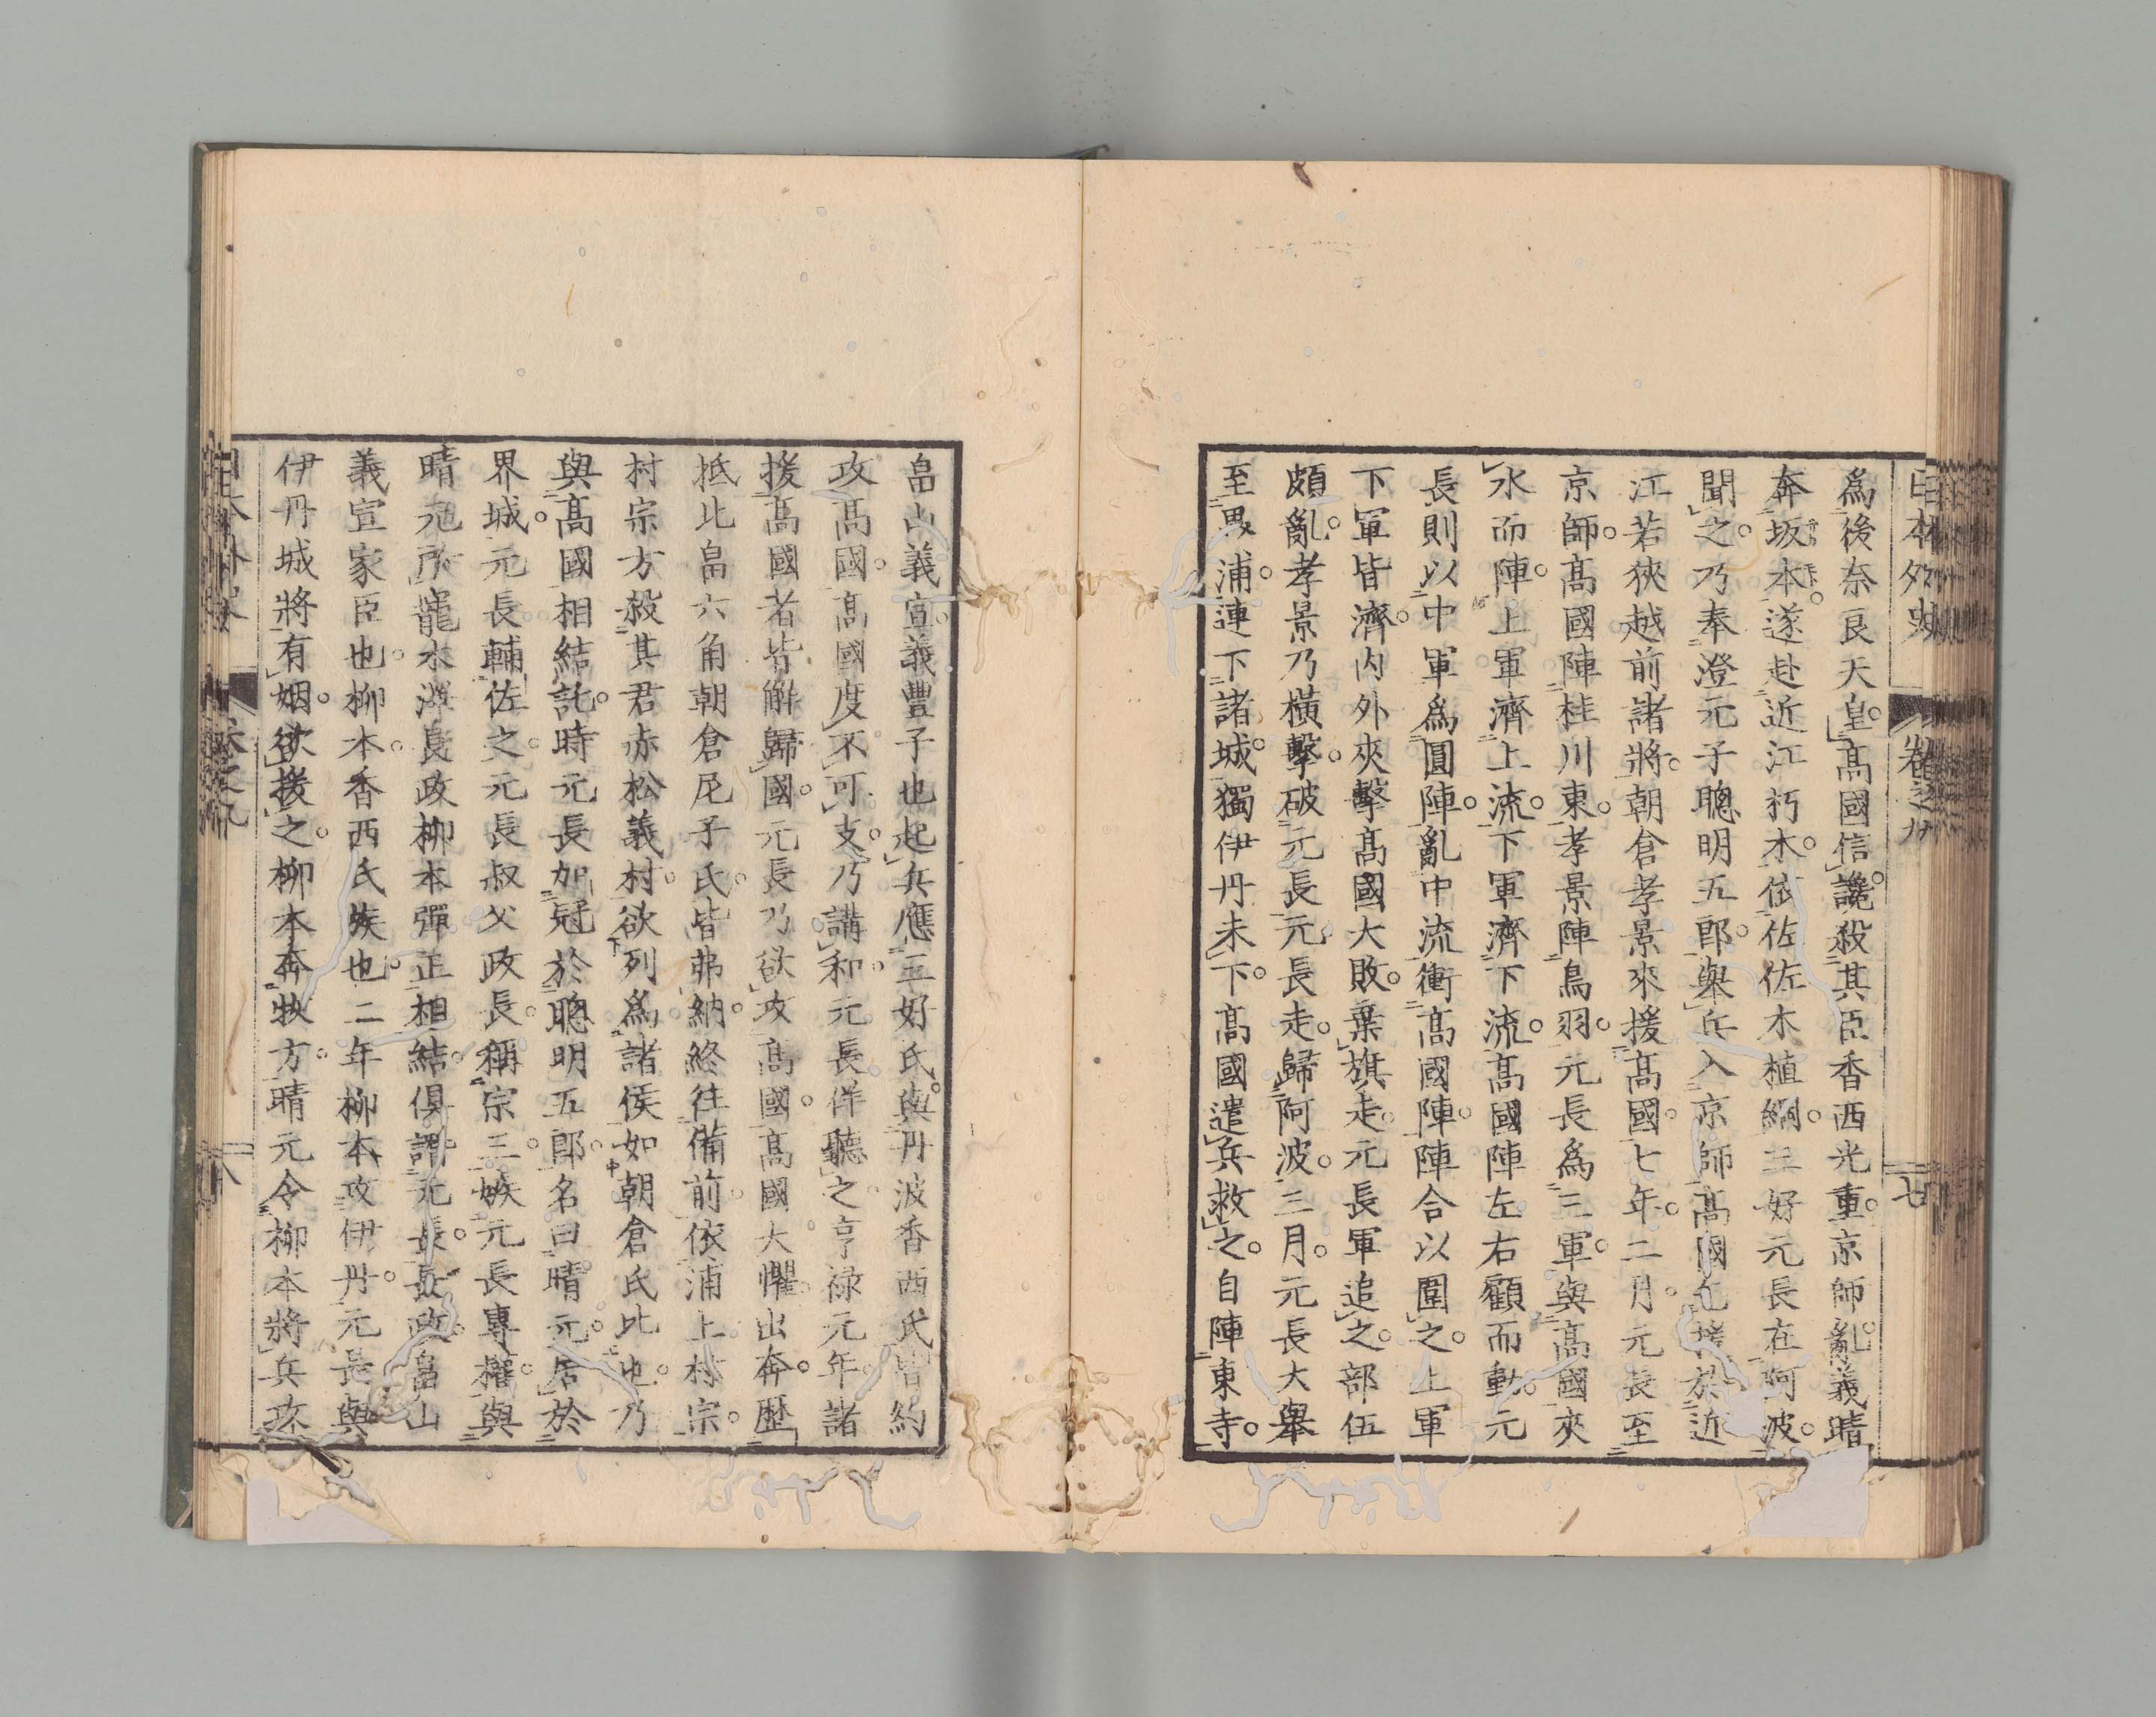 日本外史 卷之九 七
爲後奈良天皇。高國信讒。殺其臣香西光重。京師亂。義晴
奔坂本。遂赴近江朽木。依佐佐木植綱。三好元長在阿波。
聞之。乃奉澄元子聰明五郎。舉兵入京師。高國
江若狹越前諸將。朝倉孝景來援高國。七年。二月。元長至
京師。高國陣桂川東。孝景陣鳥羽。元長爲三軍。與高國夾
水而陣。上軍濟上流。下軍濟下流。高國陣左右顧而動。元
長則以中軍爲圓陣。亂中流衝高國陣。陣合以圍之。上軍
下軍皆濟。內外夾擊。高國大敗。棄旗走。元長軍追之。部伍
頗亂。孝景乃橫擊。破元長。元長走。歸阿波。三月。元長大舉
至界浦。連下諸城。獨伊丹未下。高國遣兵救之。自陣東寺。
畠山義宣。義豐子也。起兵應三好氏。與丹波香西氏皆約
攻高國。高國度不可支。乃講和。元長佯聽之。享祿元年。諸
援高國者皆解歸國。元長乃欲攻高國。高國大懼。出奔。歷
抵北畠六角朝倉尼子氏。皆弗納。終往備前。依浦上村宗。
村宗方殺其君赤松義村。欲列爲諸侯如朝倉氏比也。乃
與高國相結託。時元長加冠於聰明五郎。名曰晴元。居於
界城。元長輔佐之。元長叔父政長。稱宗三。嫉元長專權。與
晴元所寵木澤長政柳本彈正相結。俱譖元長。長政。畠山
義宣家臣也。柳本。香西氏族也。二年。柳本攻伊丹。元長與
伊丹城將有姻。欲援之。柳本奔牧方。晴元令柳本將兵攻